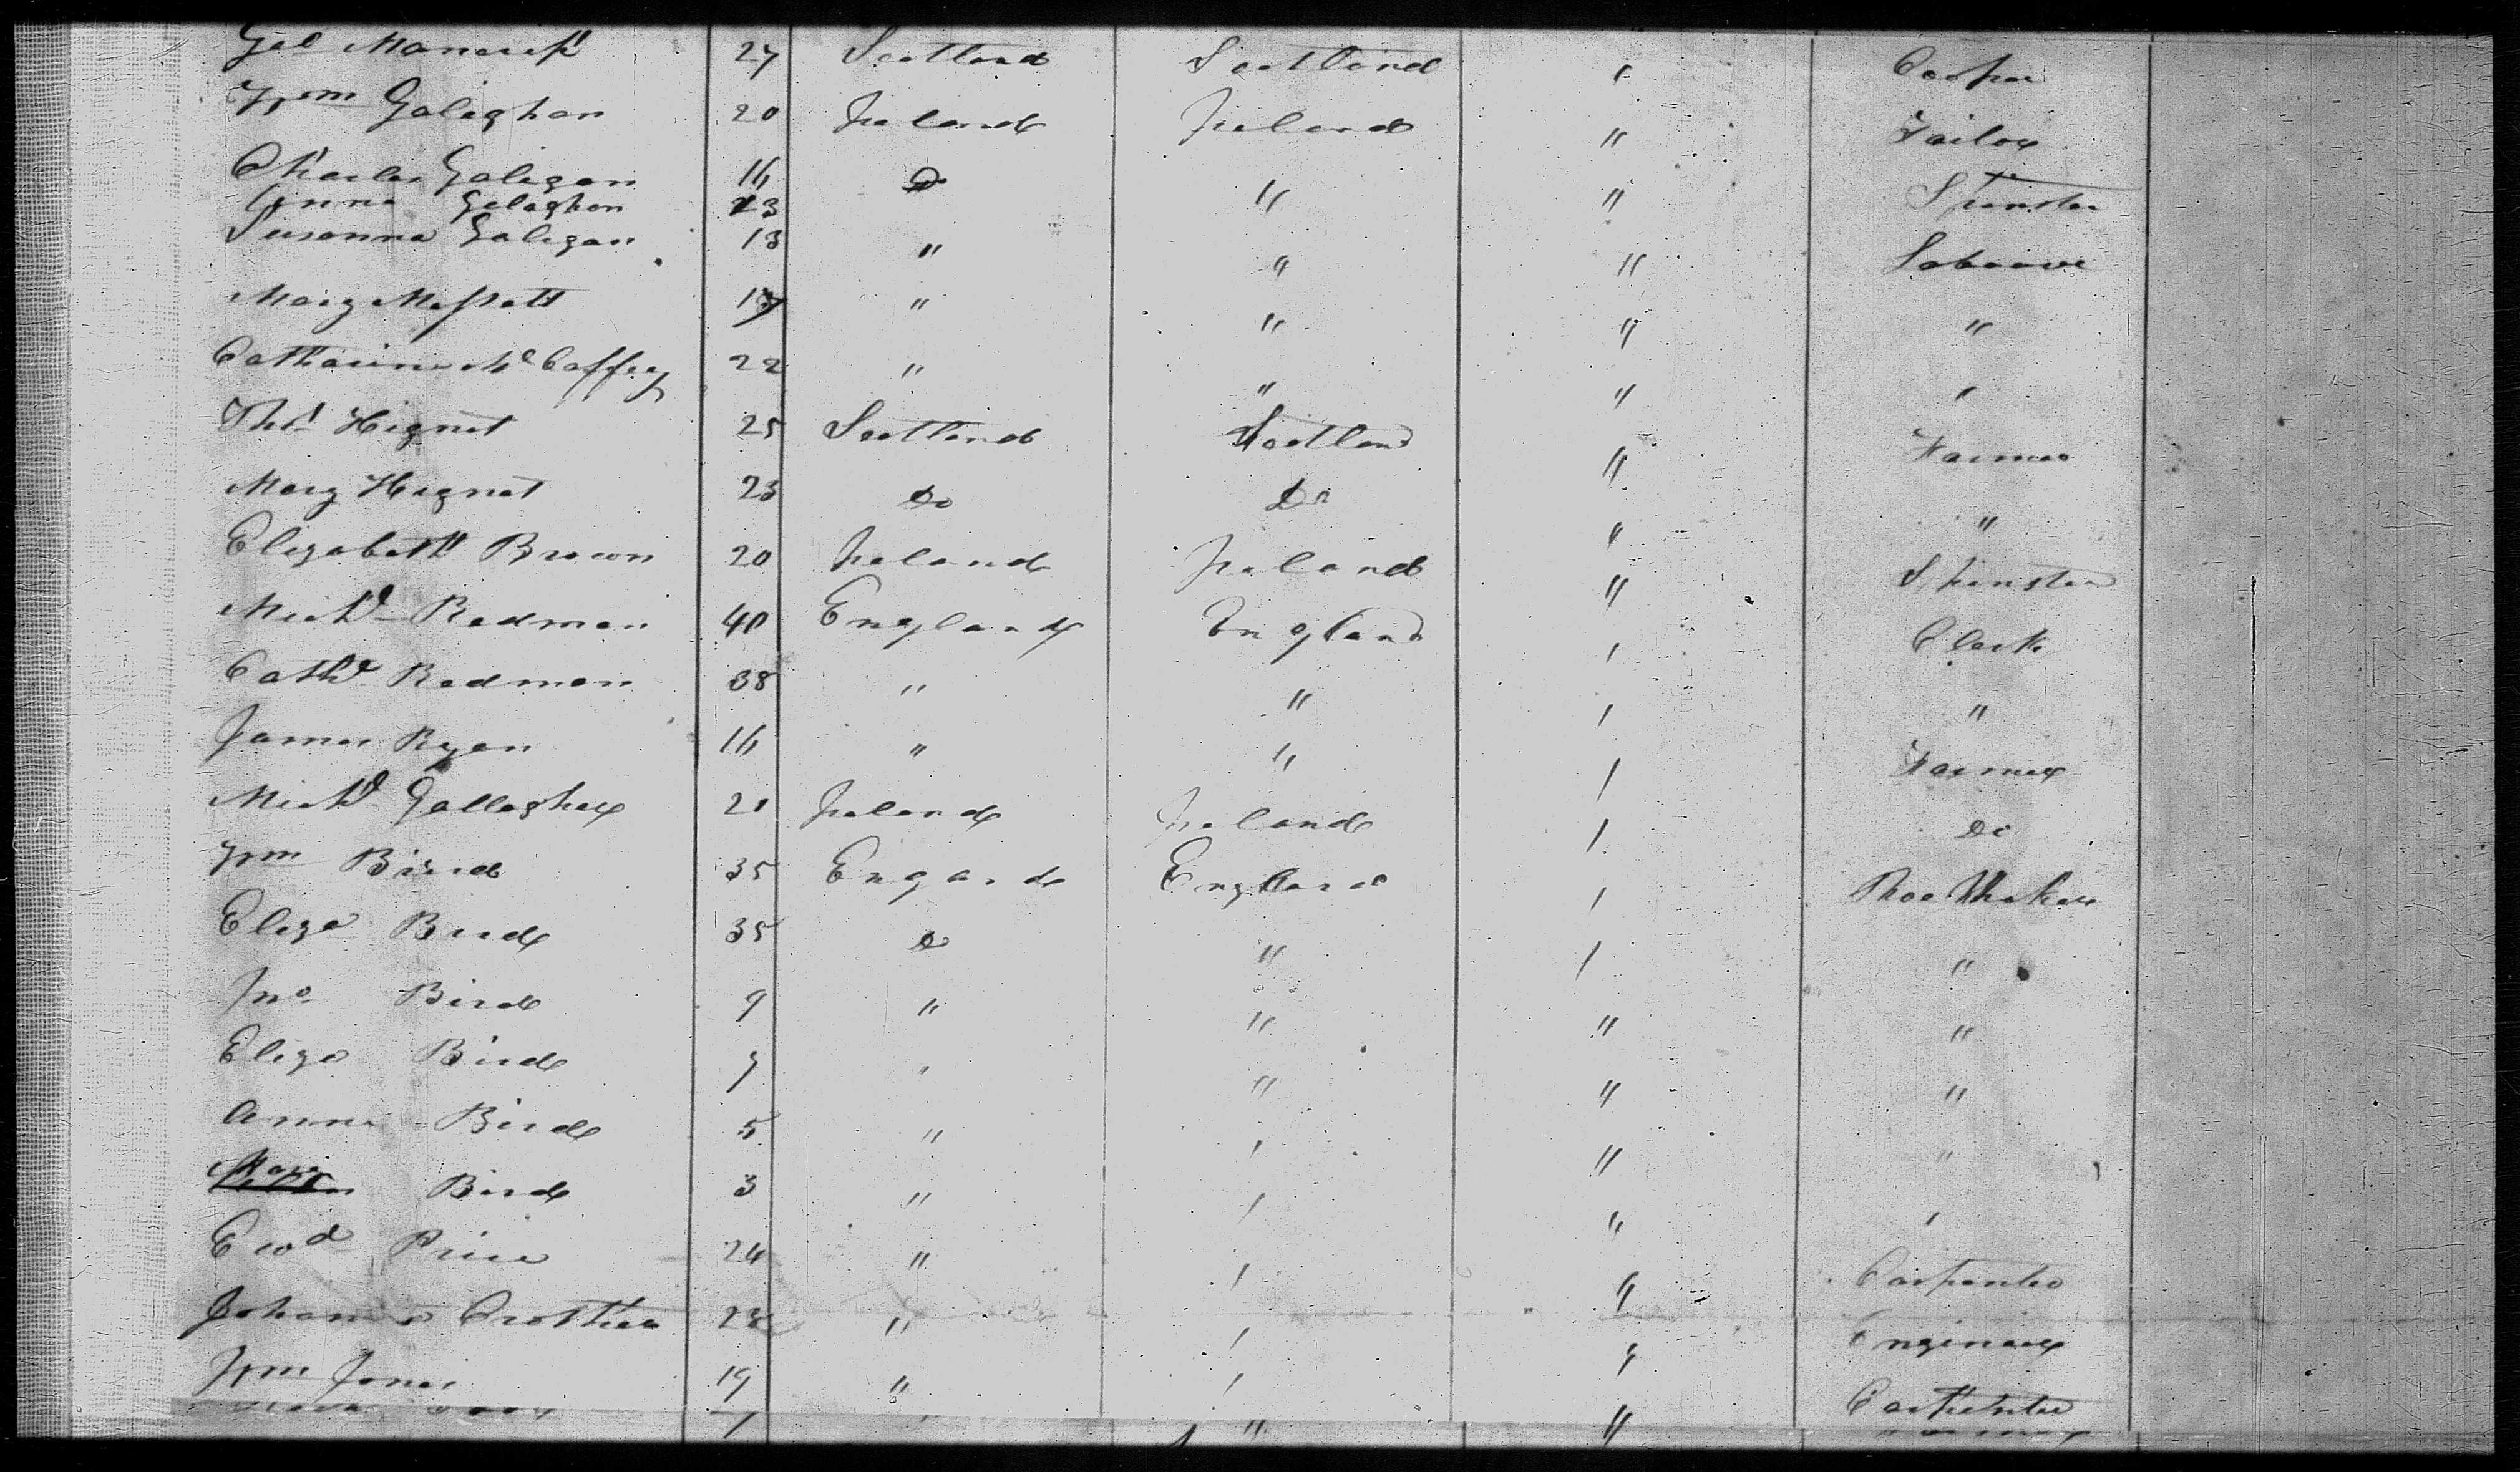 Geo 27 Scotland Scotland " Cooper
Wm Galaghan 20 Ireland Ireland " Tailor
Charles Galigan 16 Do " " Spinster
Anna Galaghan 23
Susanna Galigan 13 " " " Labourer
Mary 19 " " " "
Catharine McCaffrey 22 " " " "
Thos Hignet 25 Scotland Scotland " Farmer
Mary Hignet 23 Do Do " "
Elizabeth Brown 20 Ireland Ireland " Spinster
Michl Redman 40 England England " Clark
Cathe Redman 38 " " " "
James Ryan 16 " " " Farmer
Michl Gallagher 21 Ireland Ireland " Do
Wm Bird 35 Engand England " Shoe Maker
Eliza Bird 35 Do " " "
Jno Bird 9 " " " "
Eliza Bird 7 " " " "
Anne Bird 5 " " " "
Mary Bird 3 " " " "
Ewd Price 24 " " " Carpenter
Crother " " " Engineer
Wm Jones 19 " " " Carpenter